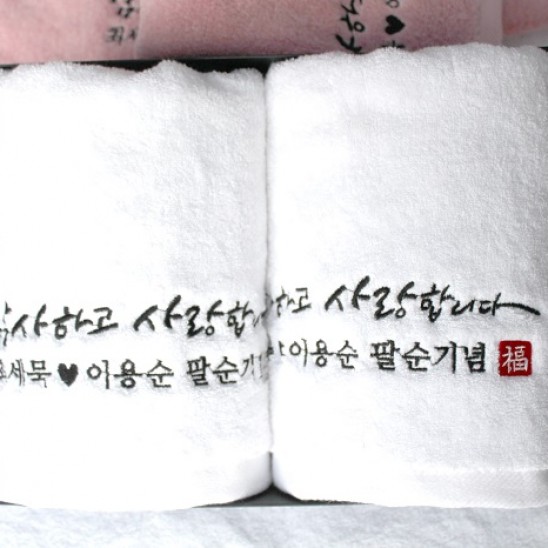 사하고 사랑합
세묵♥이용순 팔순기
하고 사랑합니다
이용순 팔순기념 福